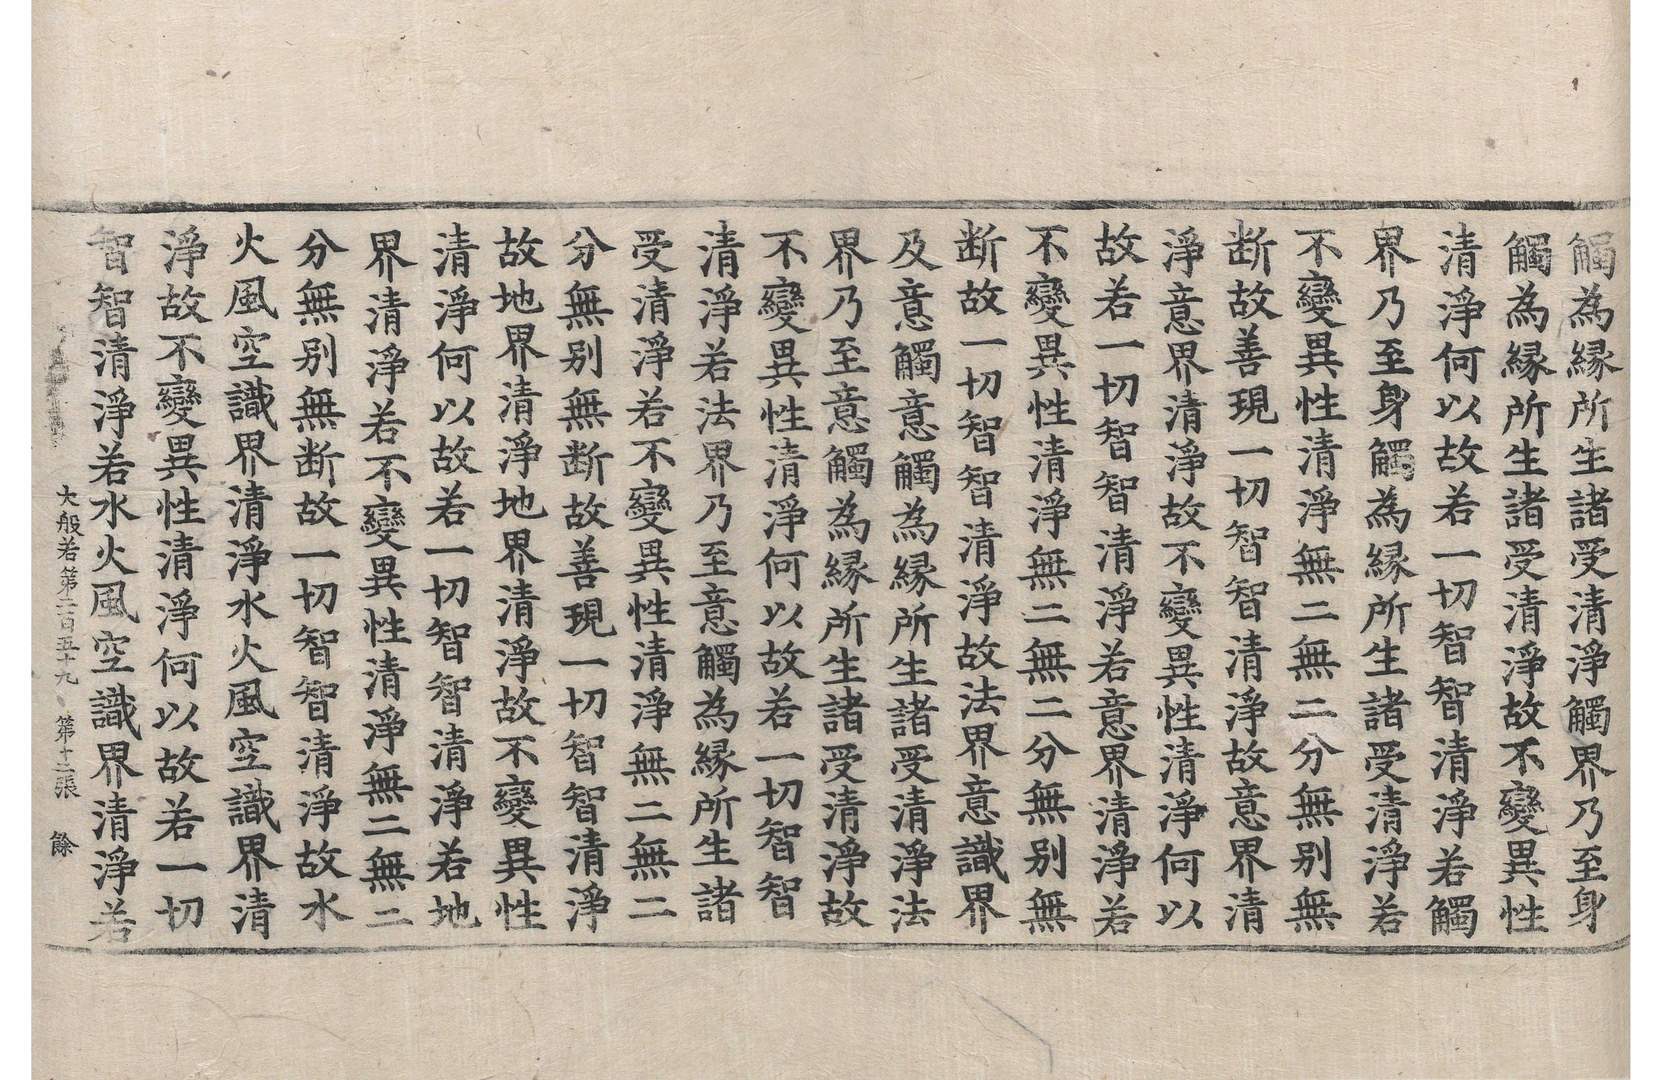 觸為縁所生諸受清淨觸界乃至身
觸為縁所生諸受清淨故不變異性
清淨何以故若一切智智清淨若觸
界乃至身觸為縁所生諸受清淨若
不變異性清淨無二無二分無别無
断故善現一切智智清淨故意界清
淨意界清淨故不變異性清淨何以
故若一切智智清淨若意界清淨若
不變異性清淨無二無二分無别無
断故一切智智清淨故法界意識界
及意觸意觸為縁所生諸受清淨法
界乃至意觸為縁所生諸受清淨故
不變異性清淨何以故若一切智智
清淨若法界乃至意觸為縁所生諸
受清淨若不變異性清淨無二無二
分無别無断故善現一切智智清淨
故地界清淨地界清淨故不變異性
清淨何以故若一切智智清淨若地
界清淨若不變異性清淨無二無二
分無别無断故一切智智清淨故水
火風空識界清淨水火風空識界清
淨故不變異性清淨何以故若一切
智智清淨若水火風空識界清淨若
大般若第二百五十九 第十二張 餘